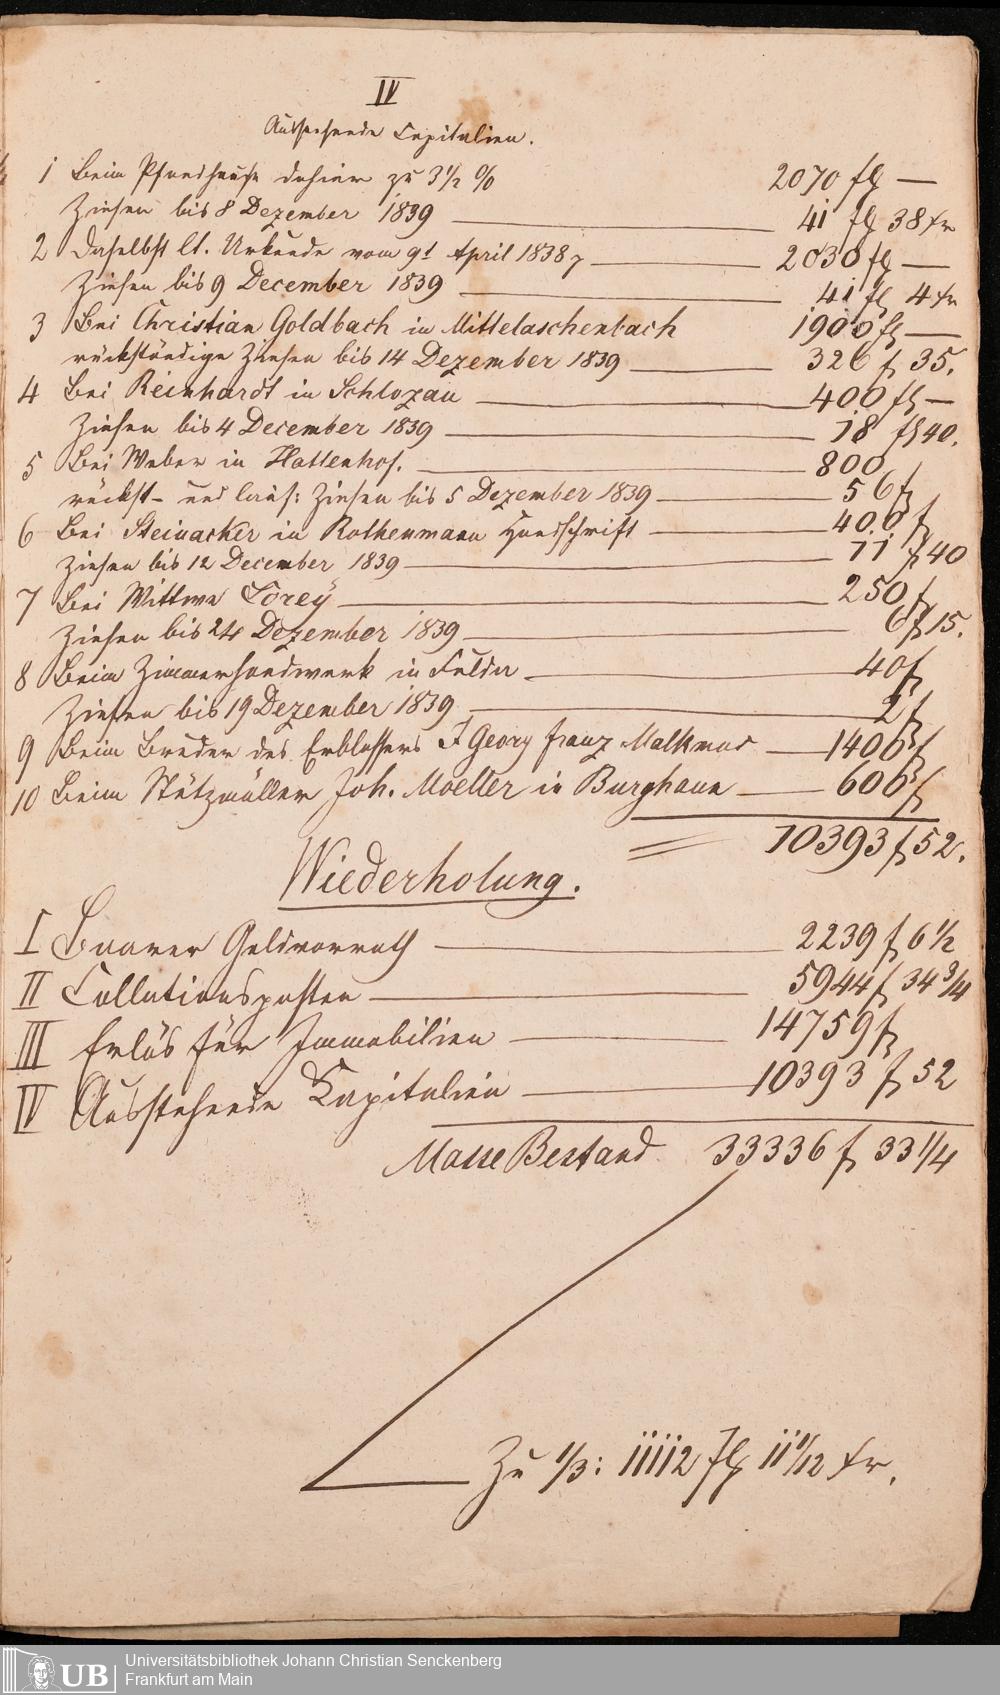 IV
Ausstehende Capitalien.
1 Beim Pfandhause dahier zu 3½ % 2070 fl —
Zinsen bis 8 Dezember 1839 — 41 fl 38 kr
2 Daselbst lt. Urkunde vom 9t April 1838 — 2030 fl —
Zinsen bis 9 December 1839 — 41 fl 4 kr
3 Bei Christian Goldbach in Mittelaschenbach 1900 fl —
rückständige Zinsen bis 14 Dezember 1839 — 326 f 35.
4 Bei Reinhardt in Schlozau — 400 fl —
Zinsen bis 4 December 1839 — 18 fl 40.
5 Bei Weber in Hattenhof. — 800
rückst- und lauf: Zinsen bis 5 Dezember 1839 — 56 f
6 Bei Steinacker in Rothenmann Handschrift — 400 f
Zinsen bis 12 December 1839 — 11 f 40
7 Bei Wittwe Lorey — 250 f
Zinsen bis 24 Dezember 1839 — 6 f 15.
8 Beim Zimmerhandwerk in Fulda — 40 f
Zinsen bis 19 Dezember 1839 — 2 f
9 Beim Bruder des Erblassers Georg Franz Malkmus — 1400 f
10 Beim Stützmüller Joh. Moeller in Burghaun — 600 f
= 10393 f 52.
Wiederholung.
I Baarer Geldvorrath — 2239 f 6½
II Collationsposten — 5944 f 34¾
III Erlös für Immobilien — 14759 f
IV Ausstehende Kapitalien — 10393 f 52
Masse Bestand 33336 f 33¼
Zu ⅓: 11112 fl 11 1/12 kr.
UB
Universitätsbibliothek Johann Christian Senckenberg
Frankfurt am Main